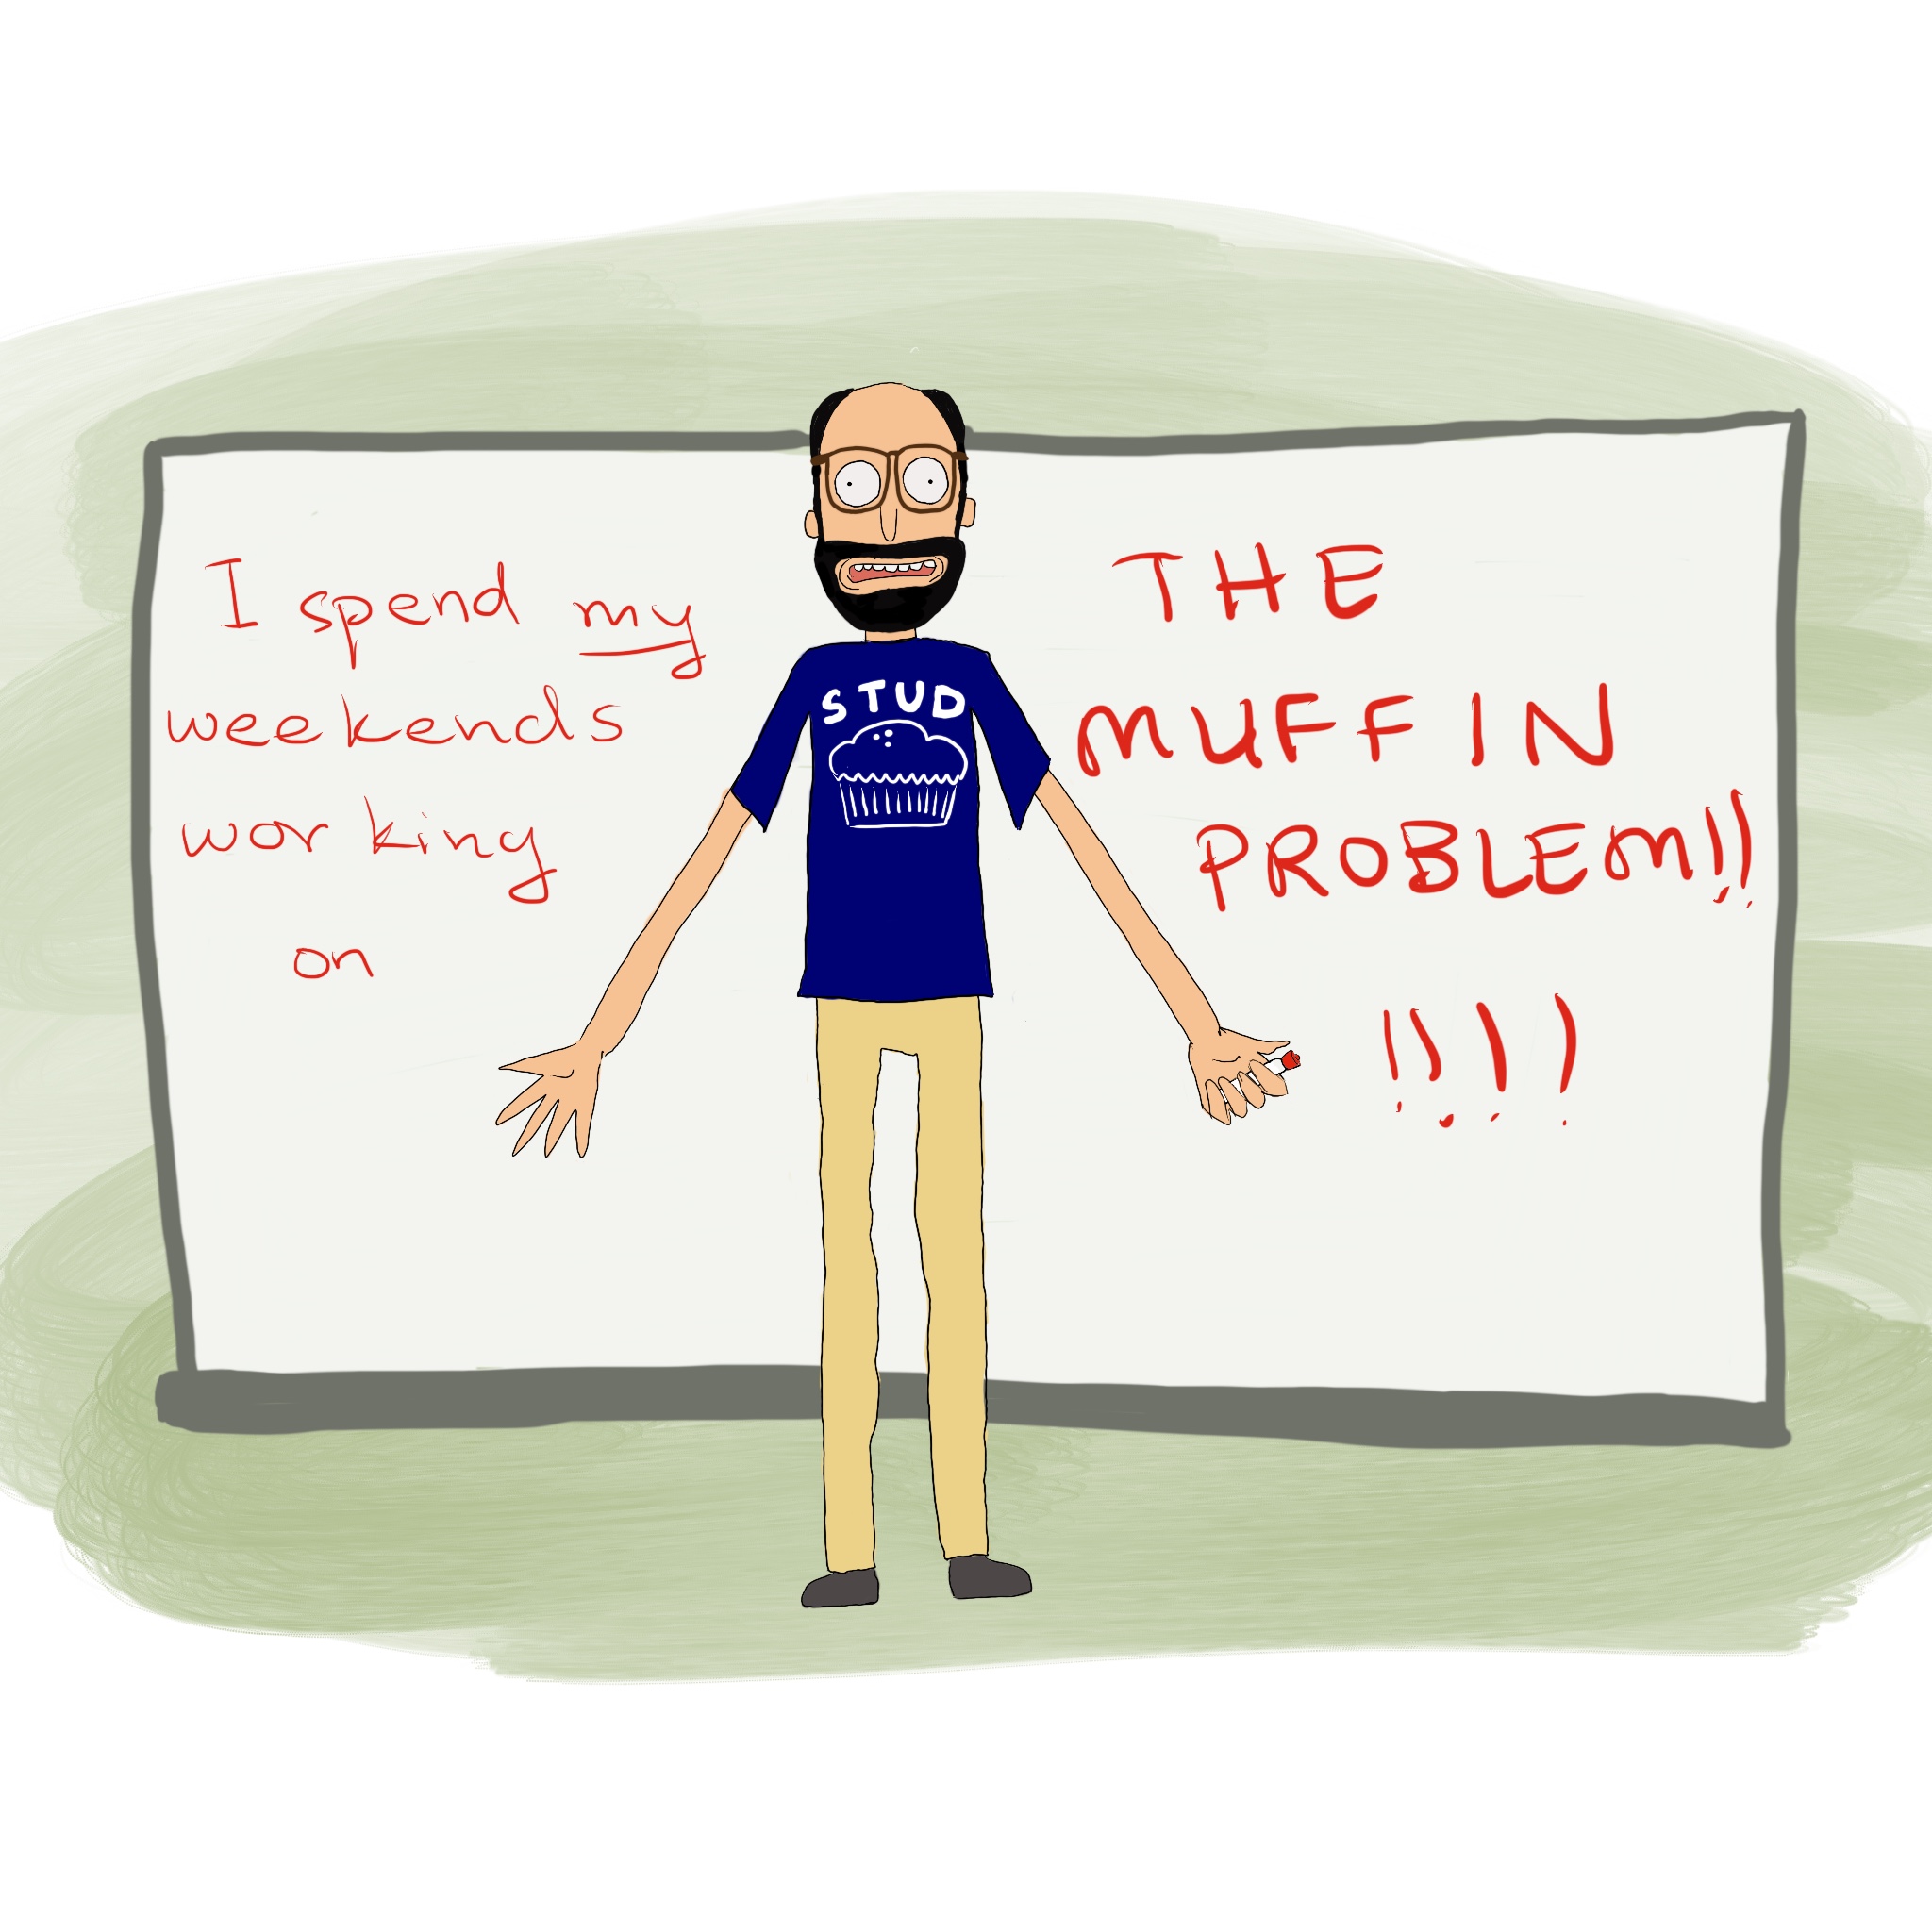 I spend my
weekends
working
on
STUD
THE
MUFFIN
PROBLEM!!
!!!!